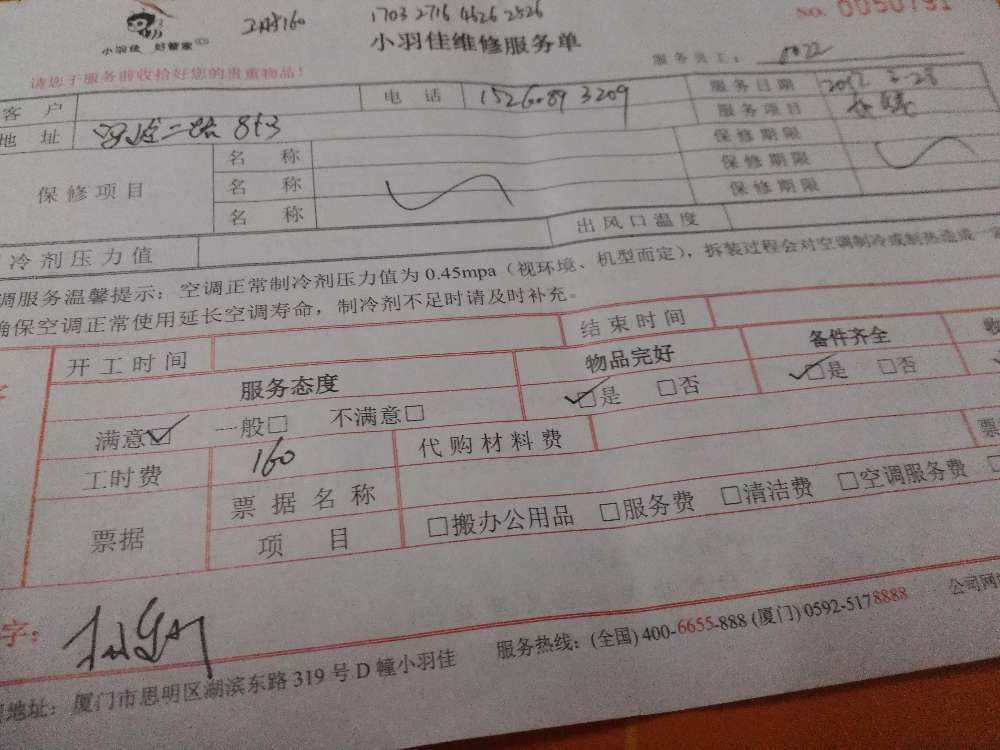 1703 2716 4626 2526
工时160
NO. 0050791
小羽佳 好管家
小羽佳维修服务单
服务员工：
请您于服务前收拾好您的贵重物品！
客 户 电 话 服务日期
地 址 服务项目
保修项目 名 称 保修期限
名 称 保修期限
名 称 保修期限
冷剂压力值 出风口温度
调服务温馨提示：空调正常制冷剂压力值为 0.45mpa（视环境、机型而定），拆装过程会对空调制冷或制热造成一
确保空调正常使用延长空调寿命，制冷剂不足时请及时补充。
开工时间 结束时间
服务态度 物品完好 备件齐全
满意□ 一般□ 不满意□ □是 □否 □是 □否
工时费 160 代购材料费
票据 票据名称
项 目 □搬办公用品 □服务费 □清洁费 □空调服务费
字：
地址：厦门市思明区湖滨东路 319 号 D 幢小羽佳 服务热线：(全国) 400-6655-888 (厦门) 0592-5178888 公司网